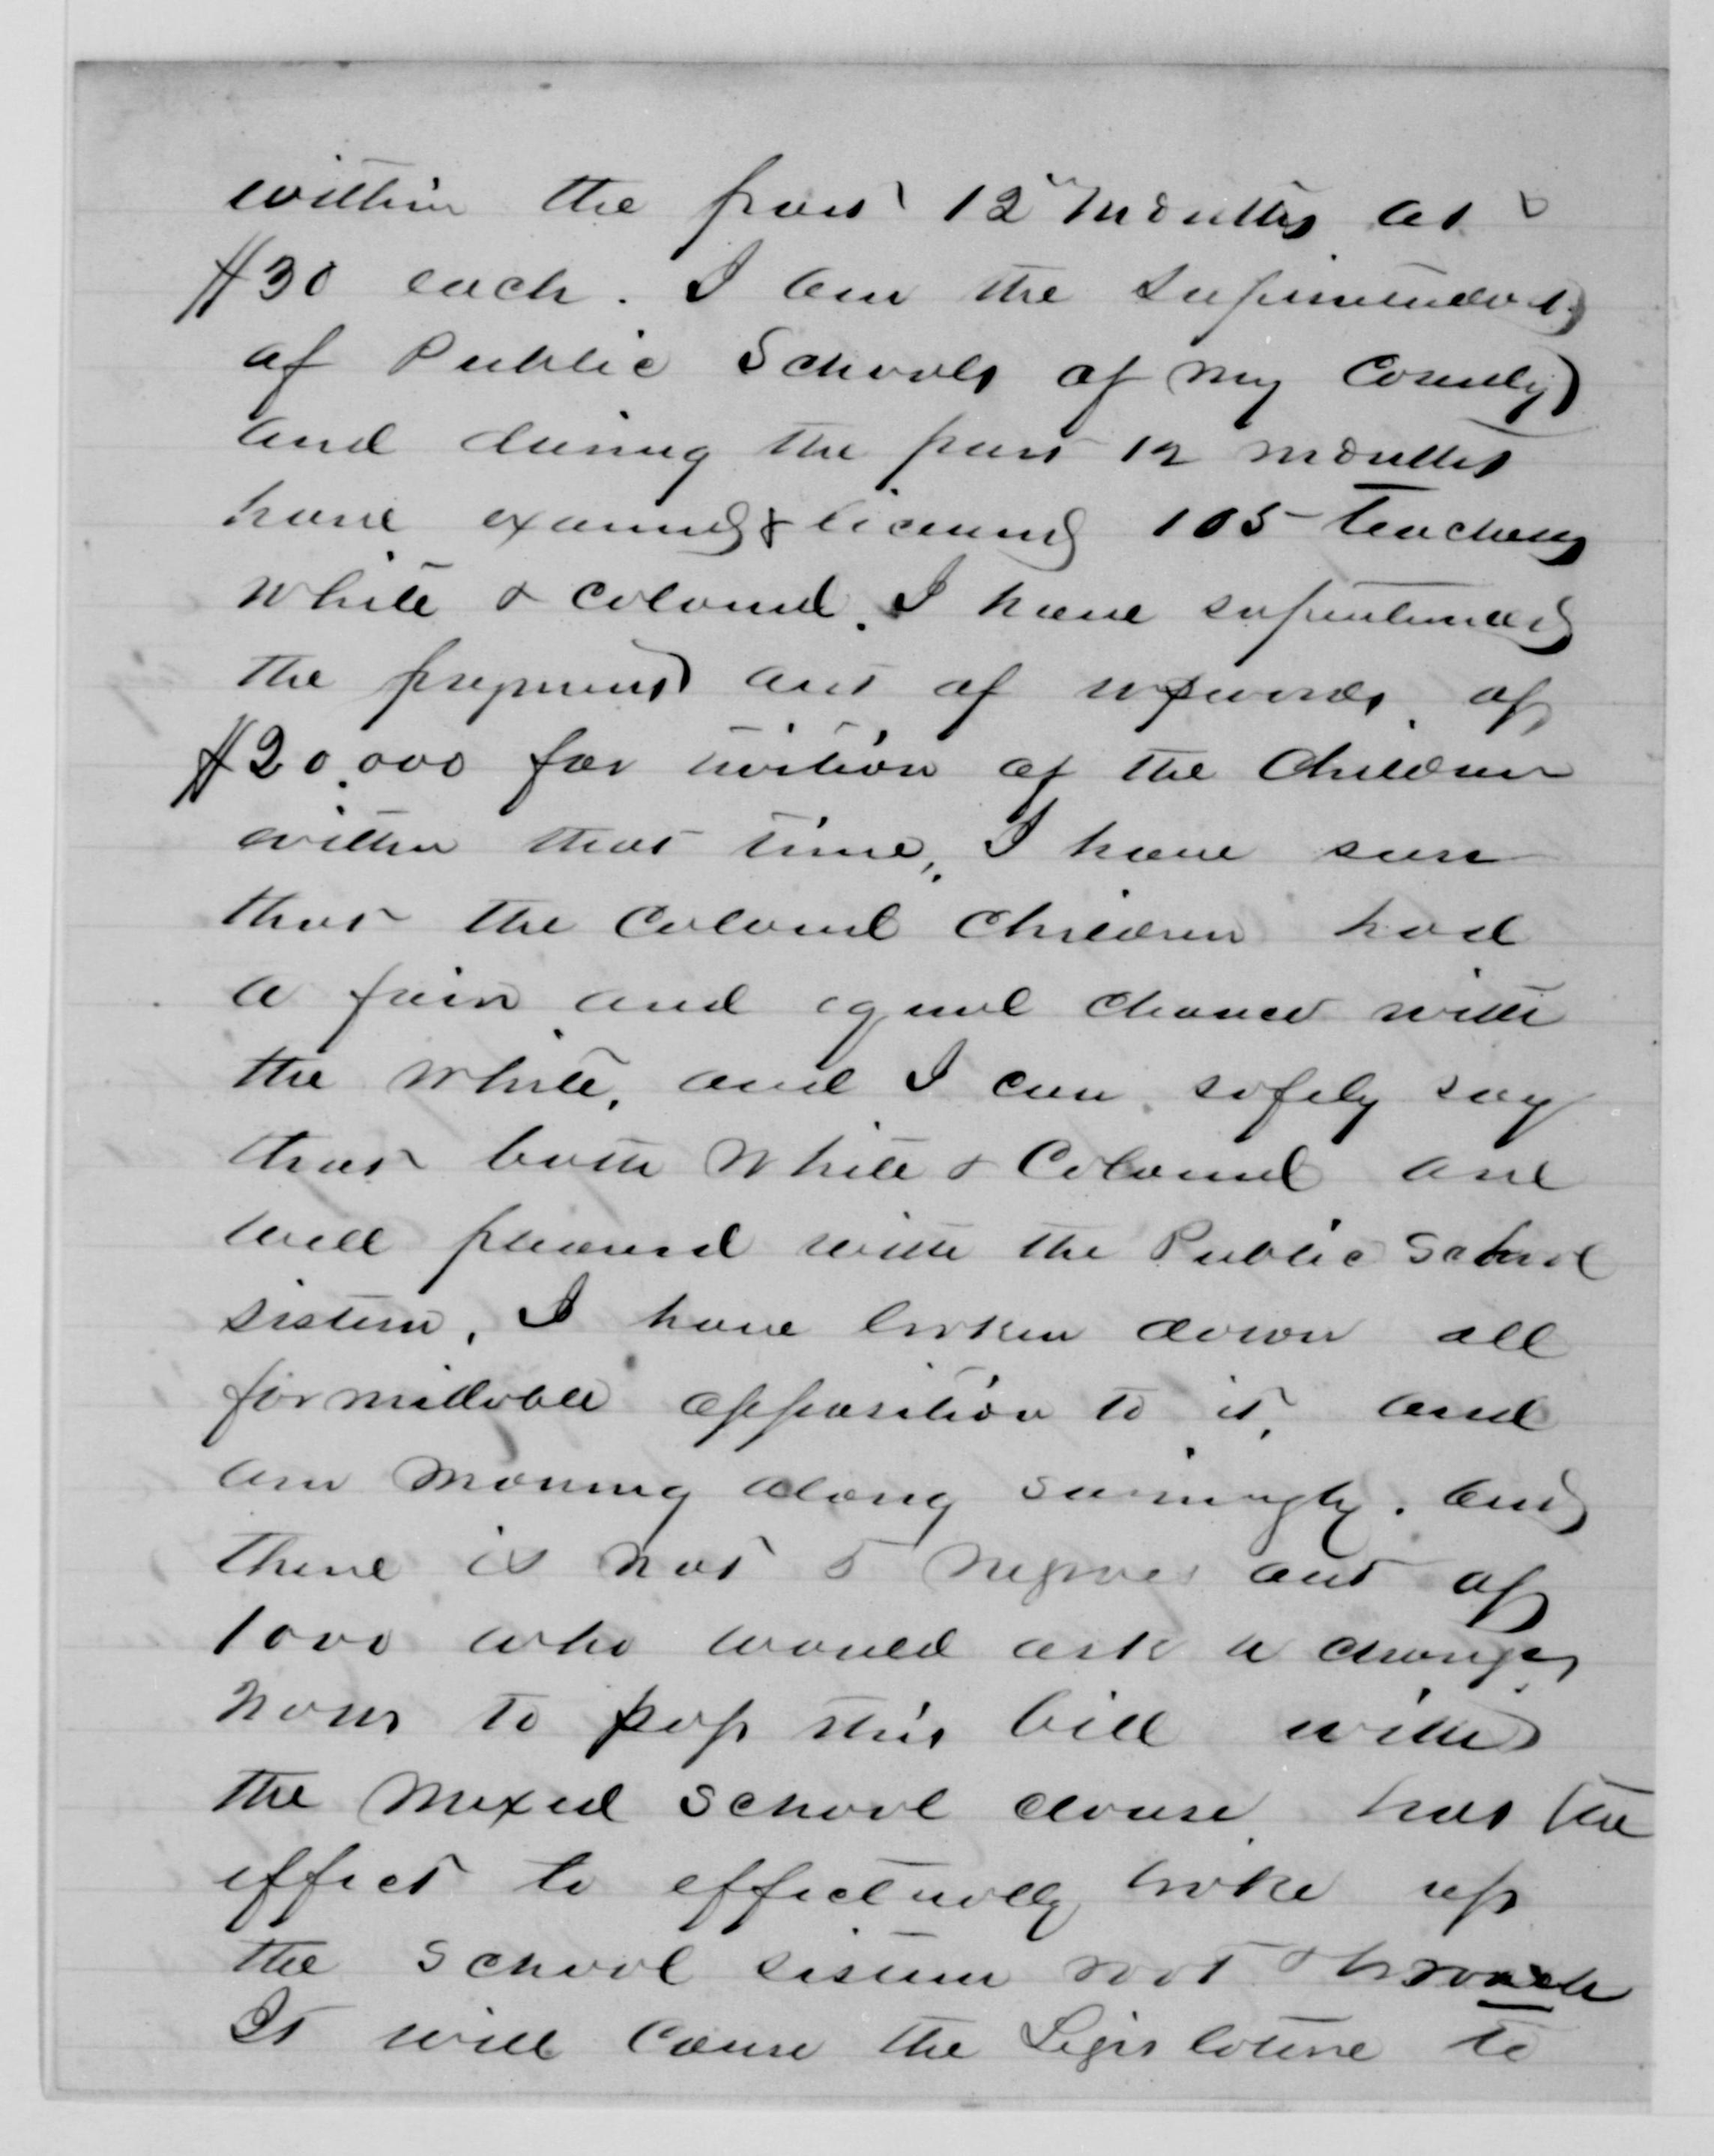 within the past 12 Months at
$30 each. I am the Superintendent
of Public Schools of my County
and during the past 12 months
have examined & licensed 105 Teachers
white & colored. I have superintended
the payment out of upwards of
$20,000 for tuition of the Children
within that time, I have seen
that the colored children had
a fair and equal chance with
the white, and I can safely say
that both White & Colored are
well pleased with the Public School
sistem, I have broken down all
formidable opposition to it, and
am moving along swimingly. and
there is not 5 negroes out of
1000 who would ask a change,
now to pass this bill with
the mixed school clause has the
effect to effectually broke up
the School sistem root & branch
It will cause the Legislature to